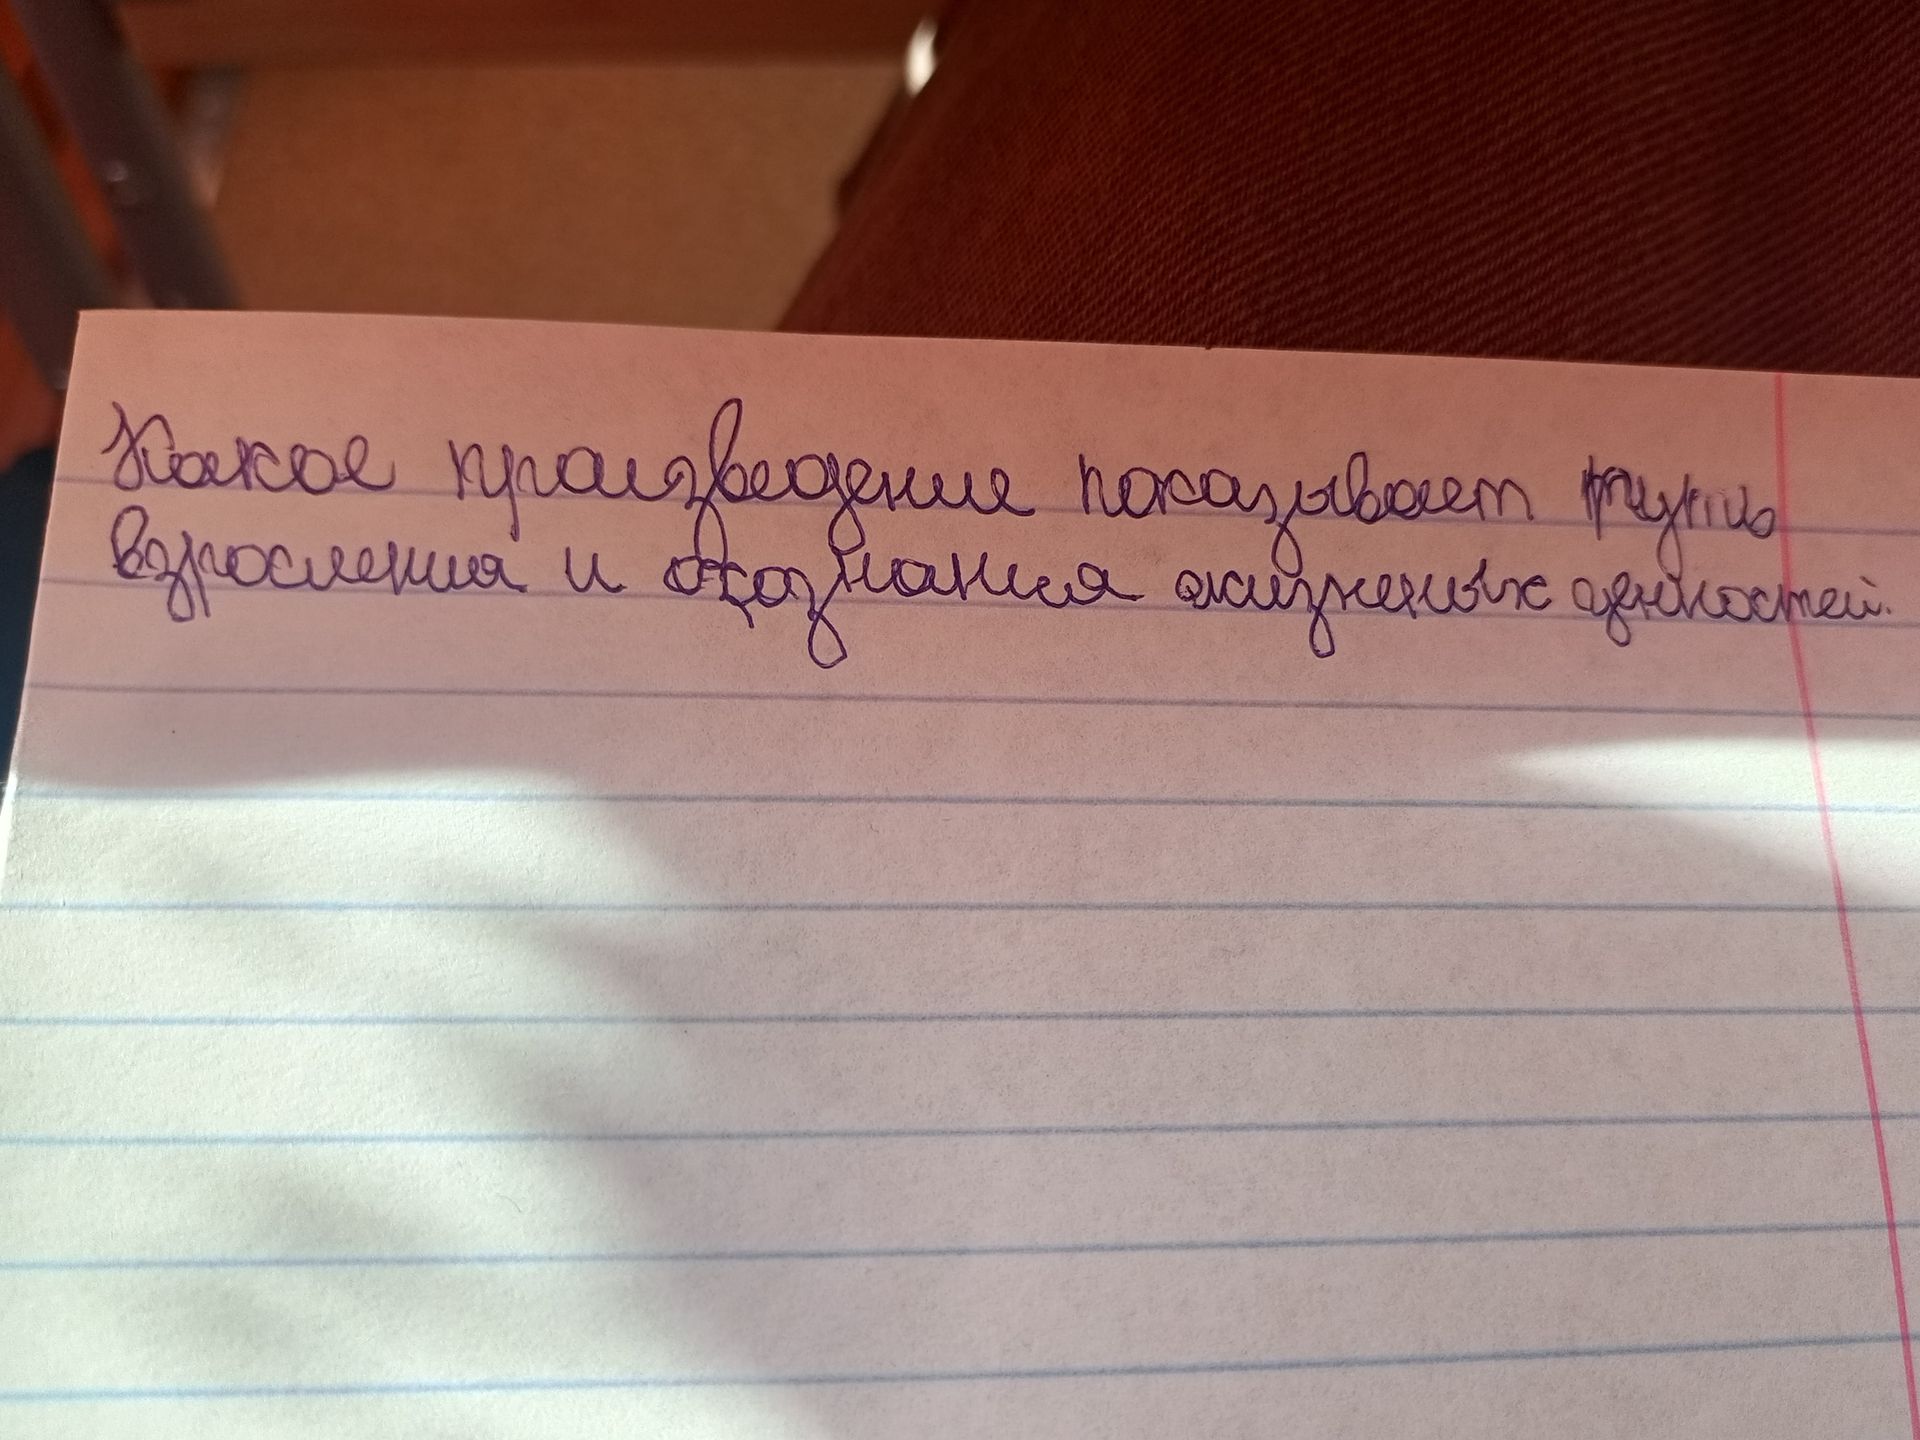 Какое произведение показывает путь
взросления и осознания жизненых ценностей.